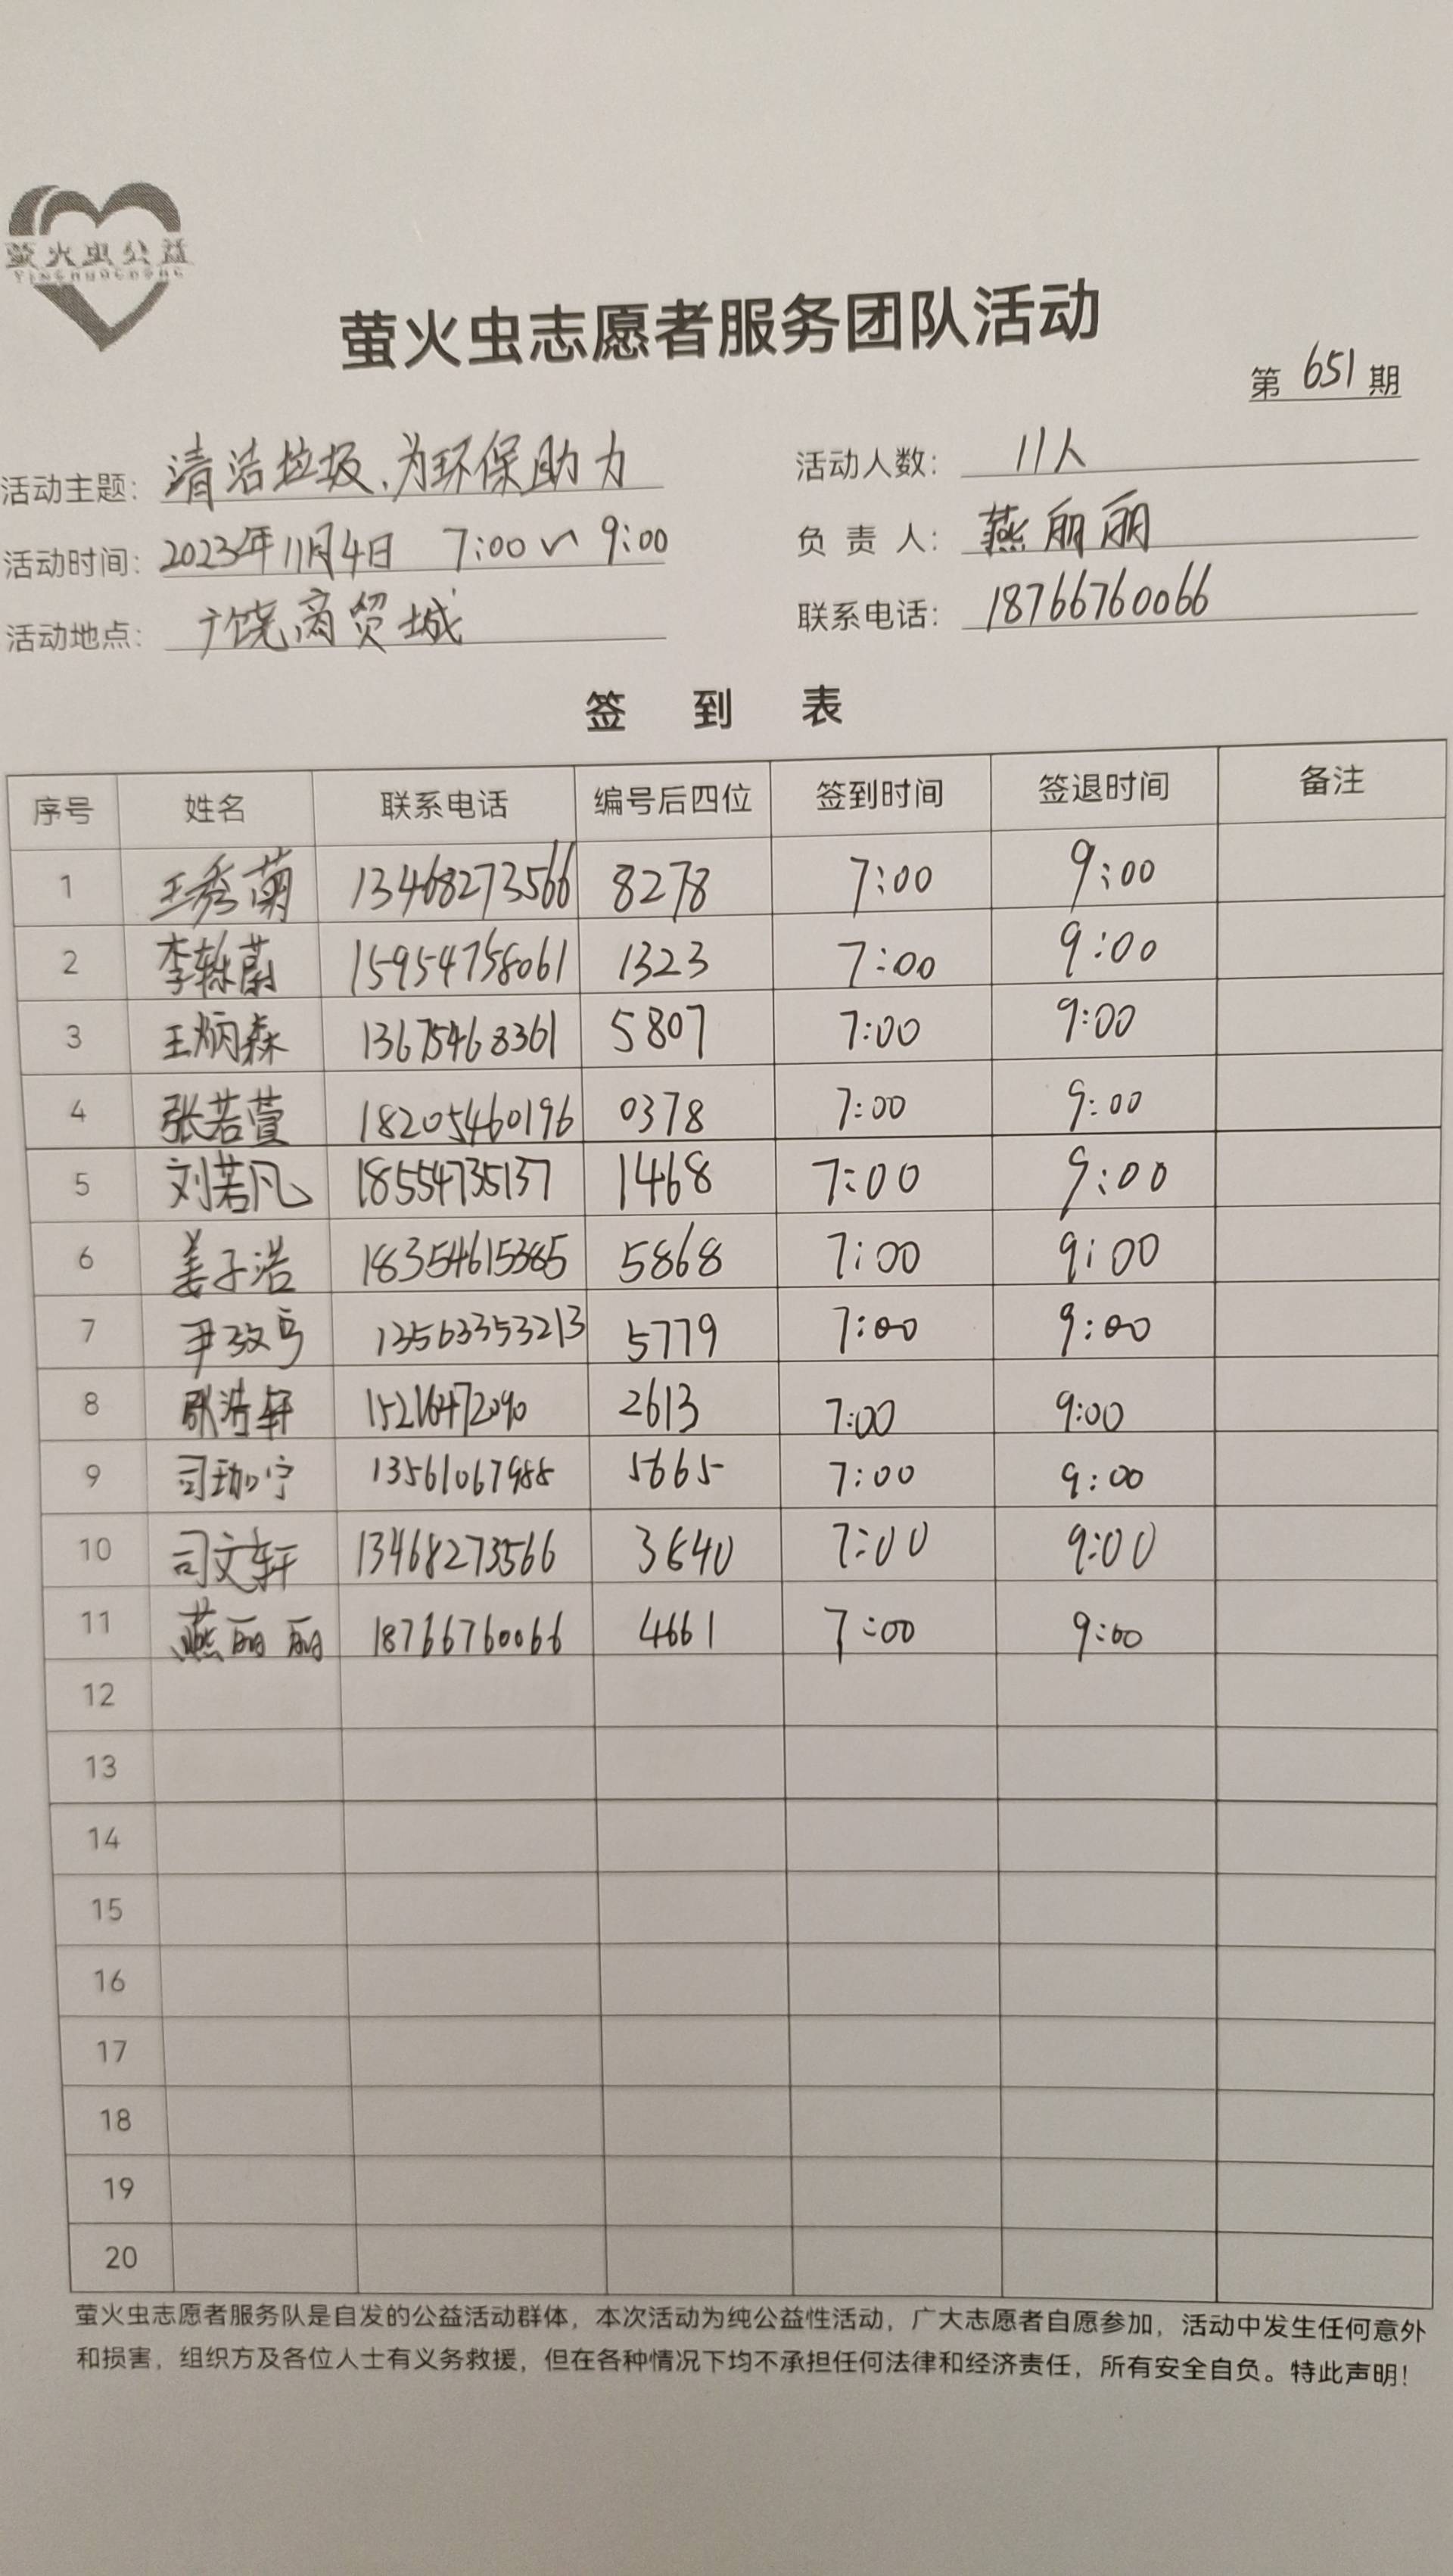 萤火虫公益
YINGHUOCHONG
萤火虫志愿者服务团队活动
第 651 期
活动主题: 清洁垃圾、为环保助力 活动人数: 11人
活动时间: 2023年11月4日 7:00~9:00 负责人: 燕丽丽
活动地点: 广饶商贸城 联系电话: 18766760066
签到表
序号 姓名 联系电话 编号后四位 签到时间 签退时间 备注
1 王秀菊 13468273566 8278 7:00 9:00
2 李轹蔚 15954758061 1323 7:00 9:00
3 王炳森 13675468361 5807 7:00 9:00
4 张若萱 18205460196 0378 7:00 9:00
5 刘若凡 18554735137 1468 7:00 9:00
6 姜子浩 18354615385 5868 7:00 9:00
7 尹 13563353213 5779 7:00 9:00
8 张浩轩 15216472090 2613 7:00 9:00
9 司珈宁 13561067988 5665 7:00 9:00
10 司文轩 13468273566 3640 7:00 9:00
11 燕丽丽 18766760066 4661 7:00 9:00
12
13
14
15
16
17
18
19
20
萤火虫志愿者服务队是自发的公益活动群体，本次活动为纯公益性活动，广大志愿者自愿参加，活动中发生任何意外
和损害，组织方及各位人士有义务救援，但在各种情况下均不承担任何法律和经济责任，所有安全自负。特此声明！